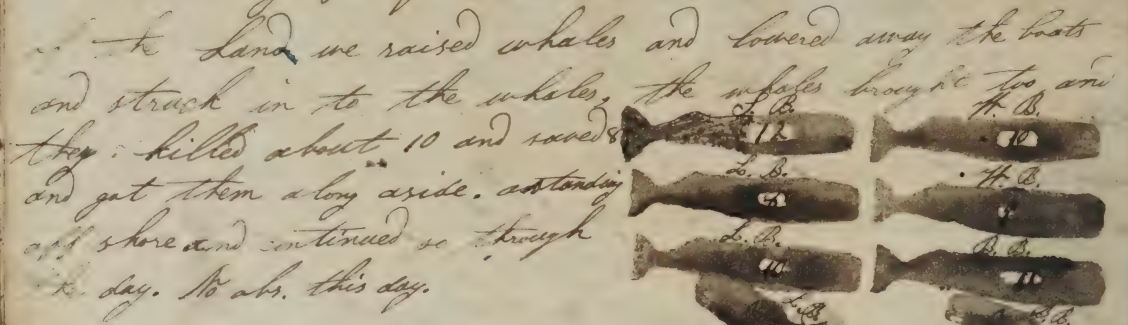 the Land we raised whales and lowered away the boats
and struck in to the whales, the whales brought too and
they killed about 10 and saved 8
and got them a long a side. a standing
off shore and continued so through
the day. No obs. this day.
L. B. H. B.
12 10
L. B. H. B.
L. B. B. B.
10
L. B. L. B.